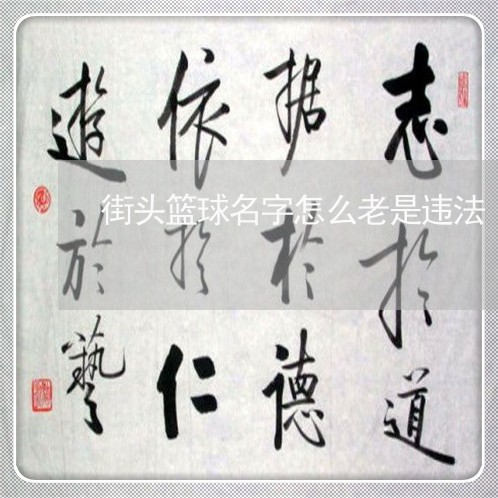 街头篮球名字怎么老是违法
志於道
据於德
依於仁
遊於藝